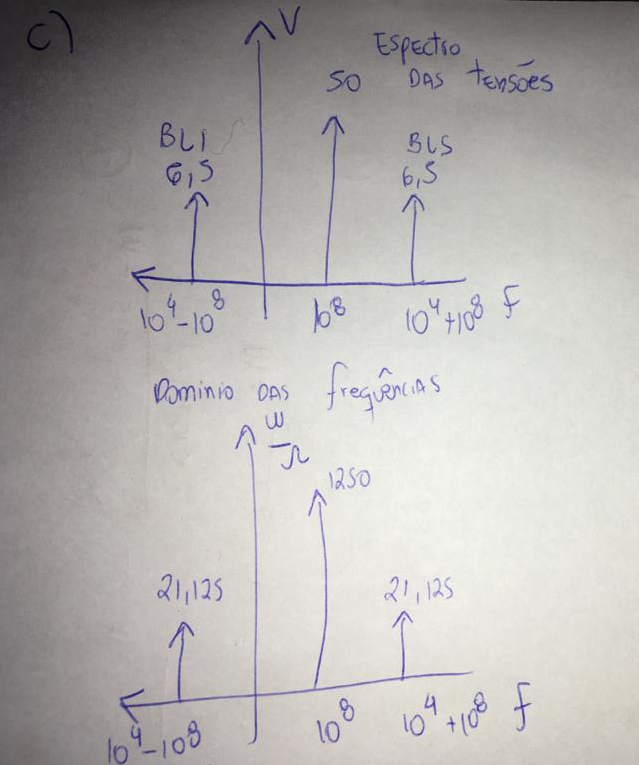 c)
V
Espectro
50 DAS tENSÕES
BLI
6,5
BLS
6,5
10⁴-10⁸
10⁸
10⁴+10⁸
f
Domínio DAS frequências
W
Ω
1250
21,125
21,125
10⁴-10⁸
10⁸
10⁴+10⁸
f